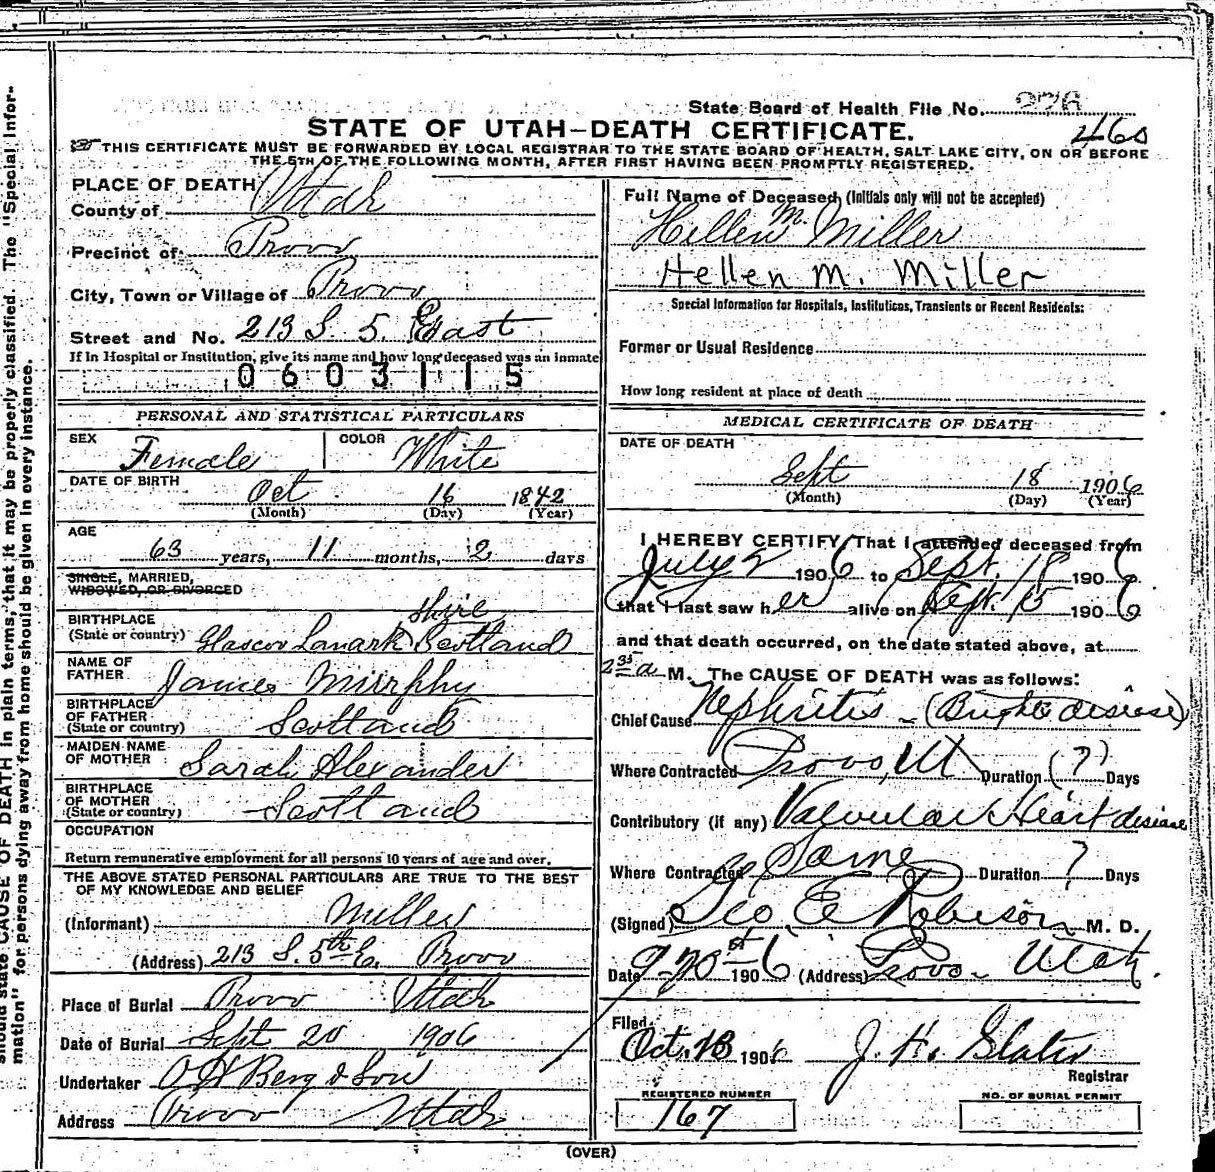 State Board of Health File No. 226
460
STATE OF UTAH-DEATH CERTIFICATE.
THIS CERTIFICATE MUST BE FORWARDED BY LOCAL REGISTRAR TO THE STATE BOARD OF HEALTH, SALT LAKE CITY, ON OR BEFORE
THE 5TH OF THE FOLLOWING MONTH, AFTER FIRST HAVING BEEN PROMPTLY REGISTERED.
PLACE OF DEATH
County of Utah
Precinct of Provo
City, Town or Village of Provo
Street and No. 213 S. 5. East
If in Hospital or Institution, give its name and how long deceased was an inmate
0603115
PERSONAL AND STATISTICAL PARTICULARS
SEX Female COLOR White
DATE OF BIRTH
Oct 16 1842
(Month) (Day) (Year)
AGE
63 years, 11 months, 2 days
SINGLE, MARRIED,
WIDOWED, OR DIVORCED
shire
BIRTHPLACE
(State or country) Glascow Lanark Scotland
NAME OF
FATHER James Murphy
BIRTHPLACE
OF FATHER
(State or country) Scotland
MAIDEN NAME
OF MOTHER Sarah Alexander
BIRTHPLACE
OF MOTHER
(State or country) Scotland
OCCUPATION
Return remunerative employment for all persons 10 years of age and over.
THE ABOVE STATED PERSONAL PARTICULARS ARE TRUE TO THE BEST
OF MY KNOWLEDGE AND BELIEF
(Informant) Miller
(Address) 213 S. 5th E. Provo
Place of Burial Provo Utah
Date of Burial Sept 20 1906
Undertaker O H Berg & Son
Address Provo Utah
Full Name of Deceased, (Initials only will not be accepted)
Hellen M. Miller
Hellen M. Miller
Special Information for Hospitals, Instituticas, Transients or Recent Residents:
Former or Usual Residence
How long resident at place of death
MEDICAL CERTIFICATE OF DEATH
DATE OF DEATH
Sept 18 1906
(Month) (Day) (Year)
I HEREBY CERTIFY That I attended deceased from
July 2 1906 to Sept. 18 1906
that I last saw her alive on Sept. 15 1906
and that death occurred, on the date stated above, at
2 35 a M. The CAUSE OF DEATH was as follows:
Chief Cause Nephritis - (Brights disiese)
Where Contracted Provo, Ut Duration (?) Days
Contributory (if any) Valvular Heart disiese
Where Contracted Same Duration ? Days
(Signed) Geo E Robison M. D.
Date 9-20st 1906 (Address) Provo - Utah.
Filed
Oct. 13 1906 J. H. Slater
Registrar
REGISTERED NUMBER
167
NO. OF BURIAL PERMIT
(OVER)
should state CAUSE OF DEATH in plain terms, that it may be properly classified. The "Special Infor-
mation" for persons dying away from home should be given in every instance.